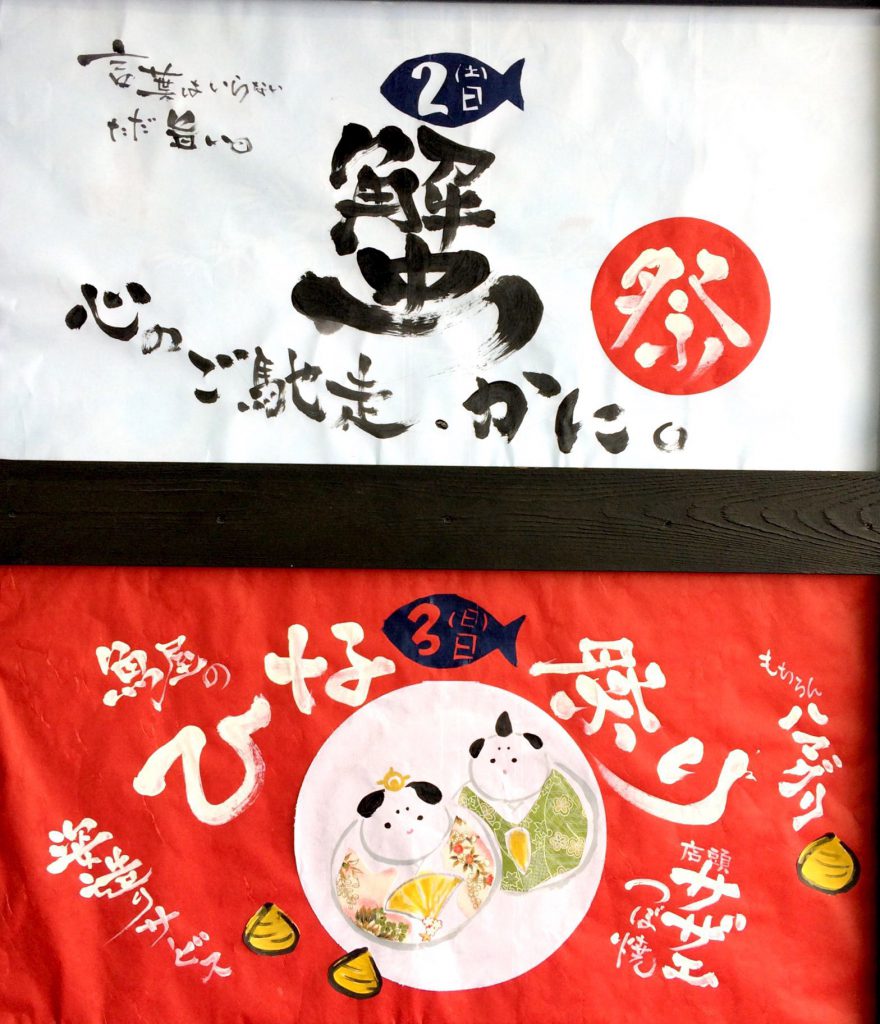 言葉はいらない
ただ旨い。
2日(土)
蟹
祭
心のご馳走・かに。
3日(日)
魚屋の
ひな祭り
もちろん
ハマグリ
店頭
サザエ
つぼ焼
浜造りサービス